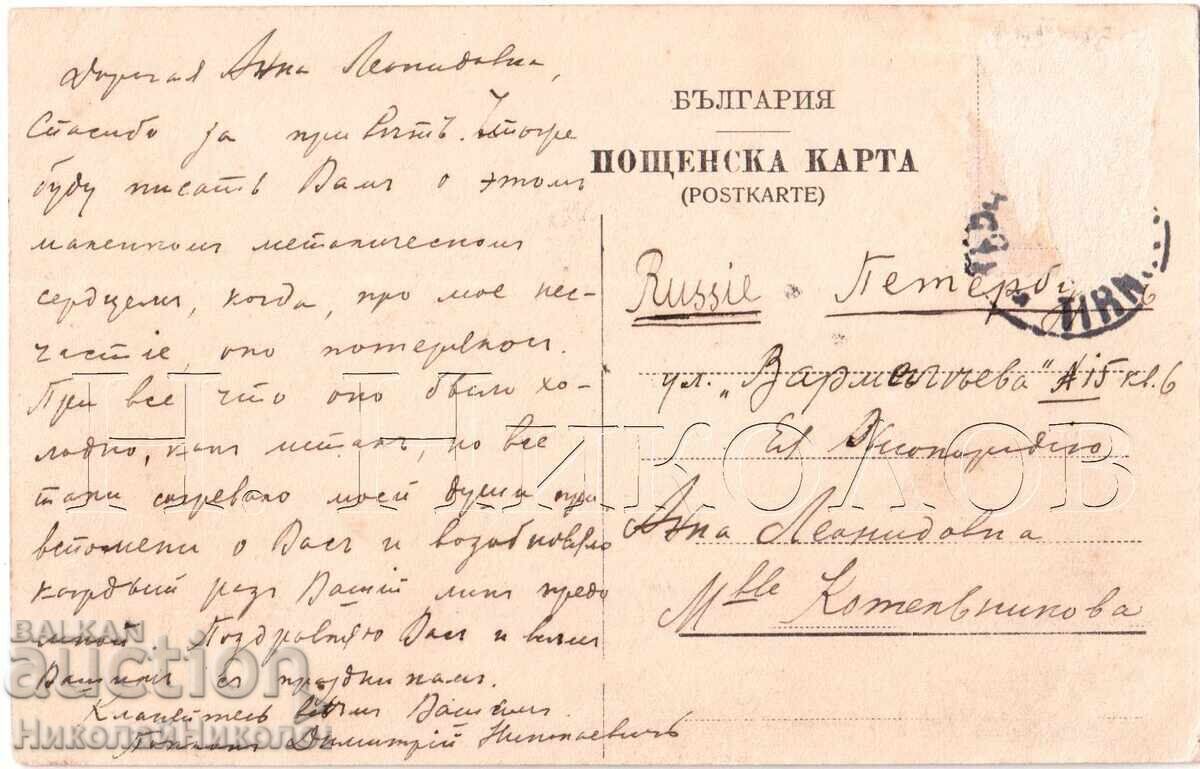 Дорогая Анна Леонидовна,
Спасибо за привѣтъ. Вскоре
буду писать Вамъ о этомъ
маленкомъ металическомъ
сердцемъ, когда, про мое нес-
частіе, оно потерялось.
При все что оно было хо-
ладно, какъ металъ, но все
таки согревало моей души при
вспомени о Васъ и возобновляло
каждый разъ Вашій ликъ предо
мной. Поздравляю Васъ и всѣм
Вашимъ съ праздникамъ.
Кланяйтесь всѣмъ Вашимъ.
Димитрій Николаевичъ
БЪЛГАРИЯ
ПОЩЕНСКА КАРТА
(POSTKARTE)
Russie Петерб
ул. А 15 кв. 6
Анна Леонидовна
Mlle Котельникова
Н. НИКОЛОВ
BALKAN
auction
НиколайНиколов